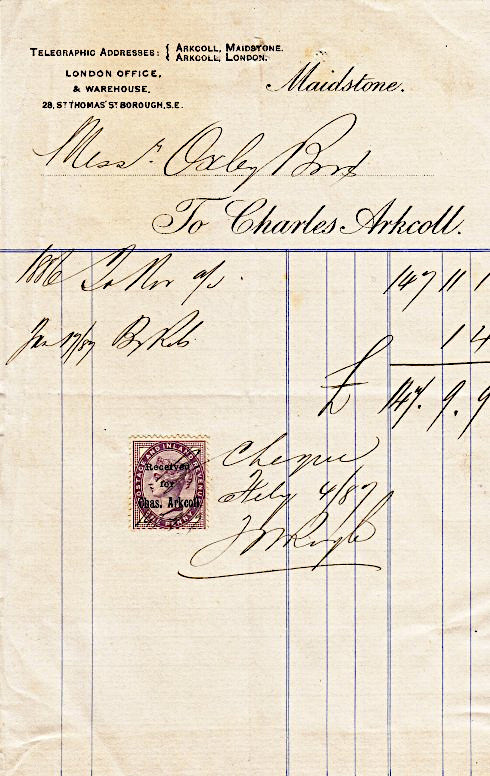 TELEGRAPHIC ADDRESSES: { ARKCOLL, MAIDSTONE.
ARKCOLL, LONDON.
LONDON OFFICE,
& WAREHOUSE,
28, ST THOMAS' ST BOROUGH, S.E.
Maidstone.
Messrs Oxley Bros
To Charles Arkcoll.
1886 To Nov a/c 147 11 1
Jan 17/87 By 1 4
£ 147. 9. 9
POSTAGE AND INLAND REVENUE
Received
for
Chas. Arkcoll
ONE PENNY
Cheque
Feby 4/87